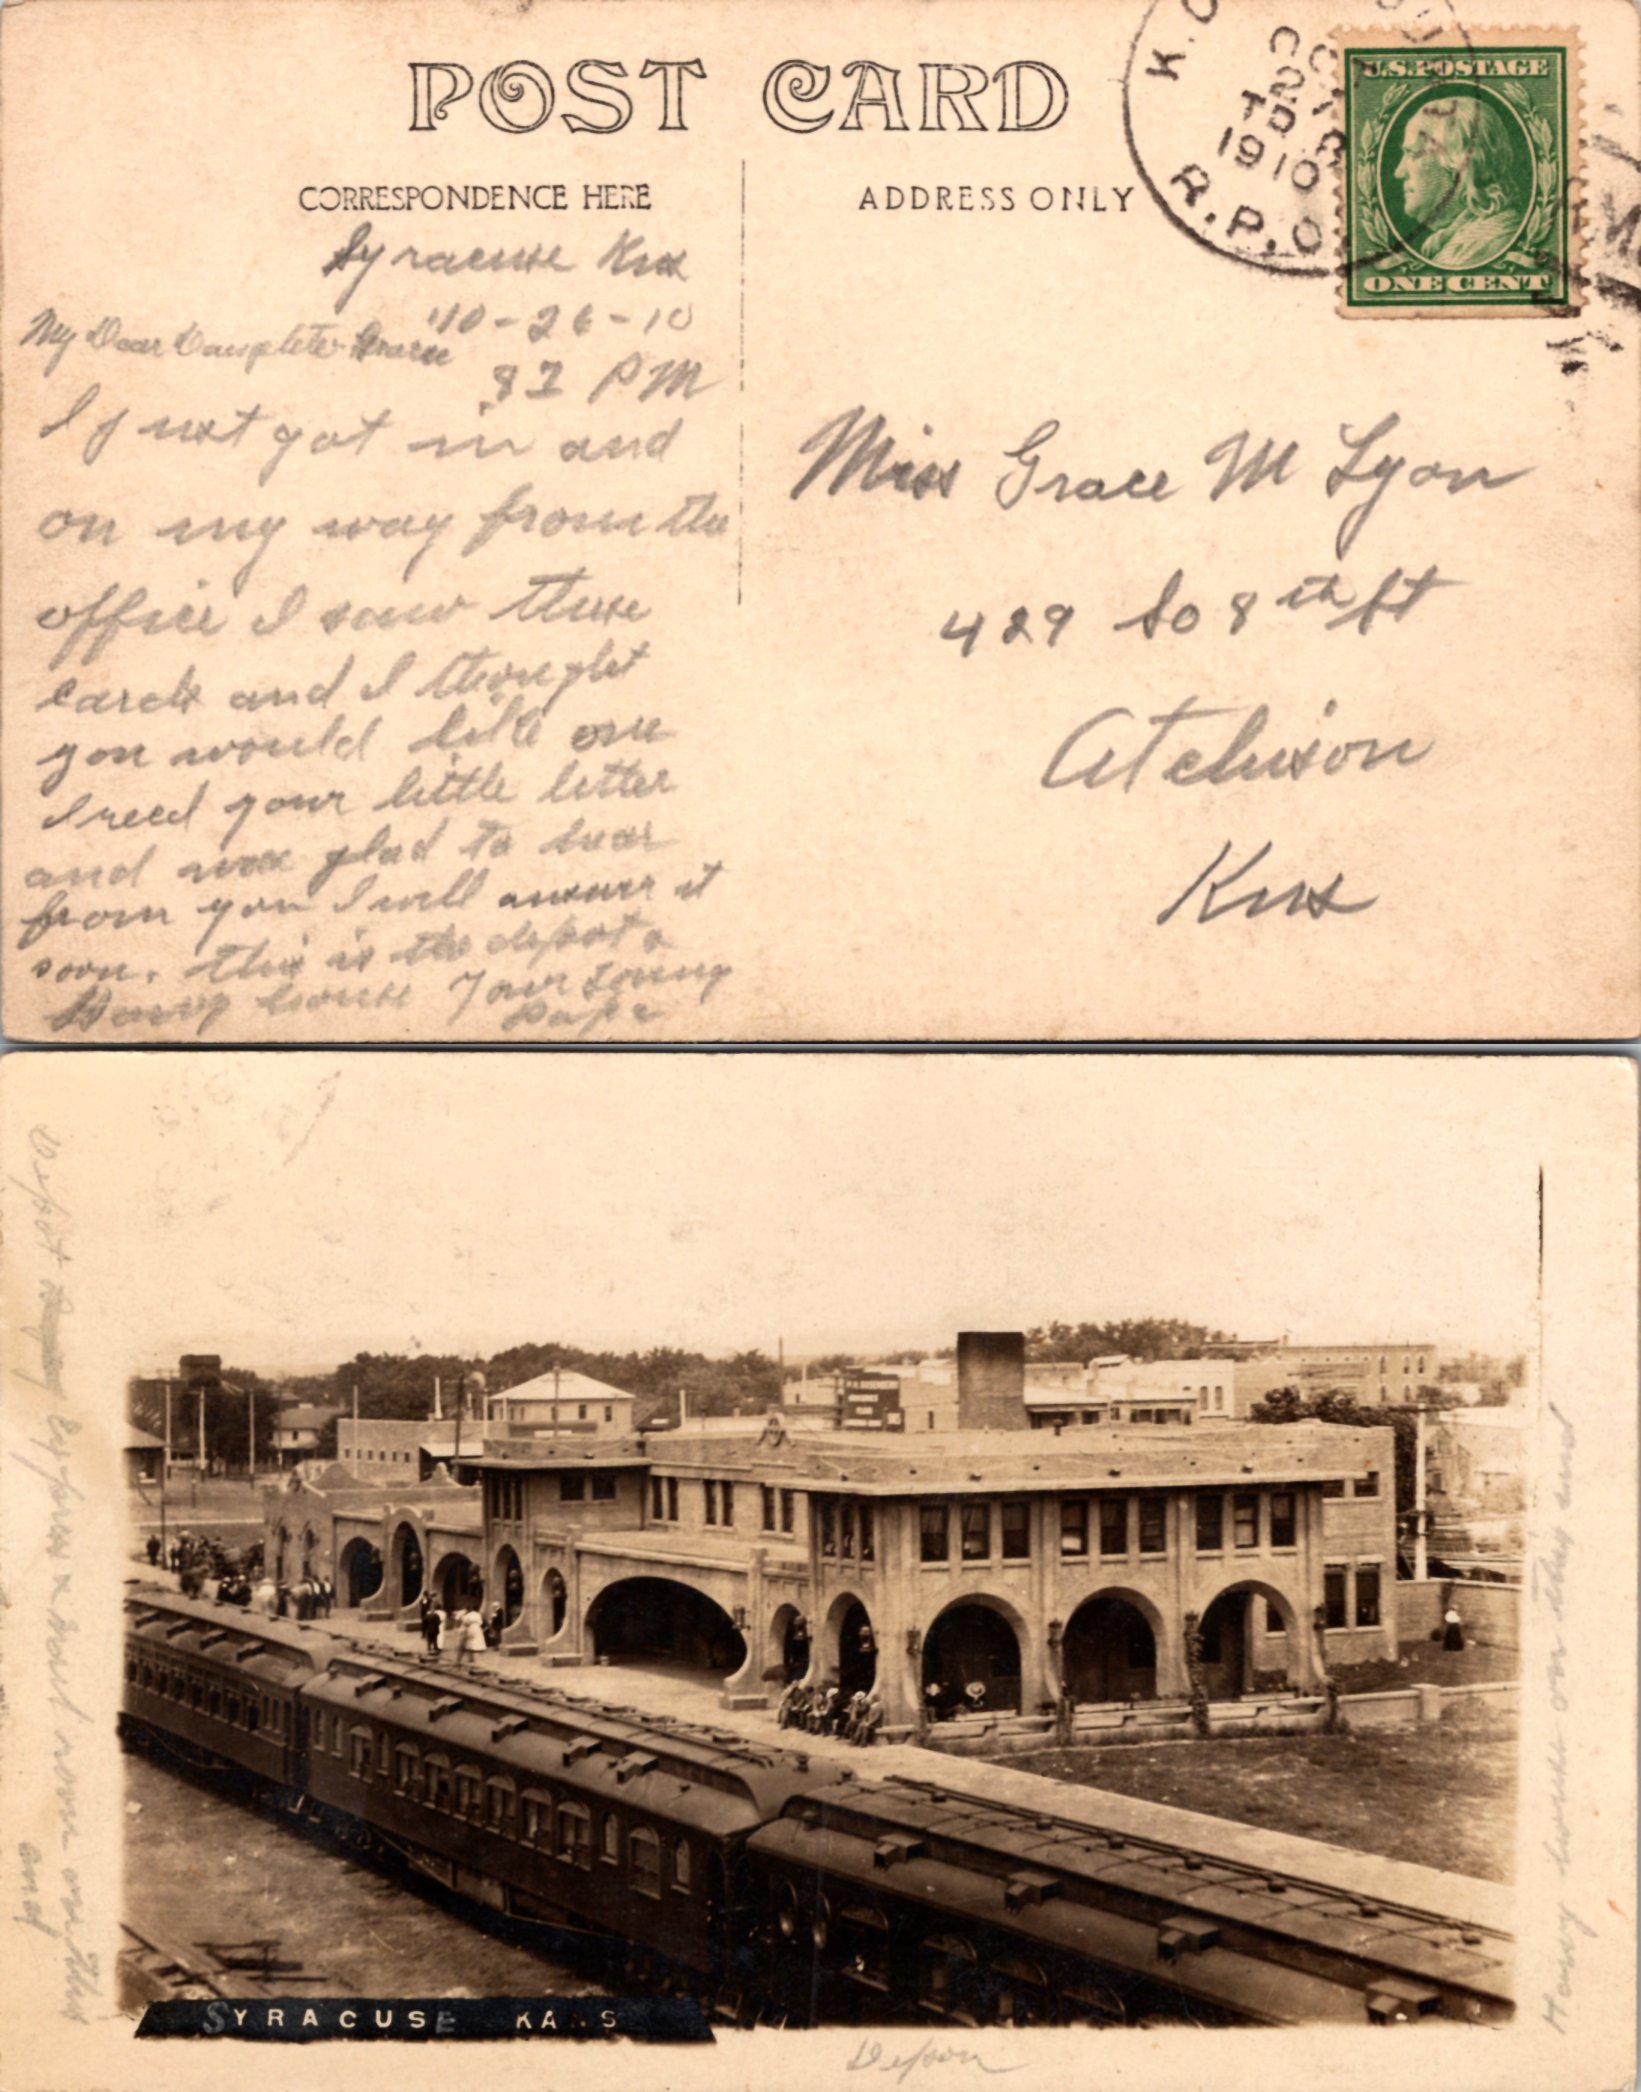 POST CARD
CORRESPONDENCE HERE
ADDRESS ONLY
R.P.O.
1910
U.S. POSTAGE
ONE CENT
Syracuse Kns
10-26-10
PM
My Dear Daughter Grace
I just got in and
on my way from the
office I saw these
cards and I thought
you would like one
I recd your little letter
and was glad to hear
from you I will answer it
soon. this is the depot &
Harvy house Your Loving
Papa
Miss Grace M Lyon
429 So 8th St
Atchison
Kns
Depot Express & Bart room on this
end
Harvy house on this end
SYRACUSE KANS